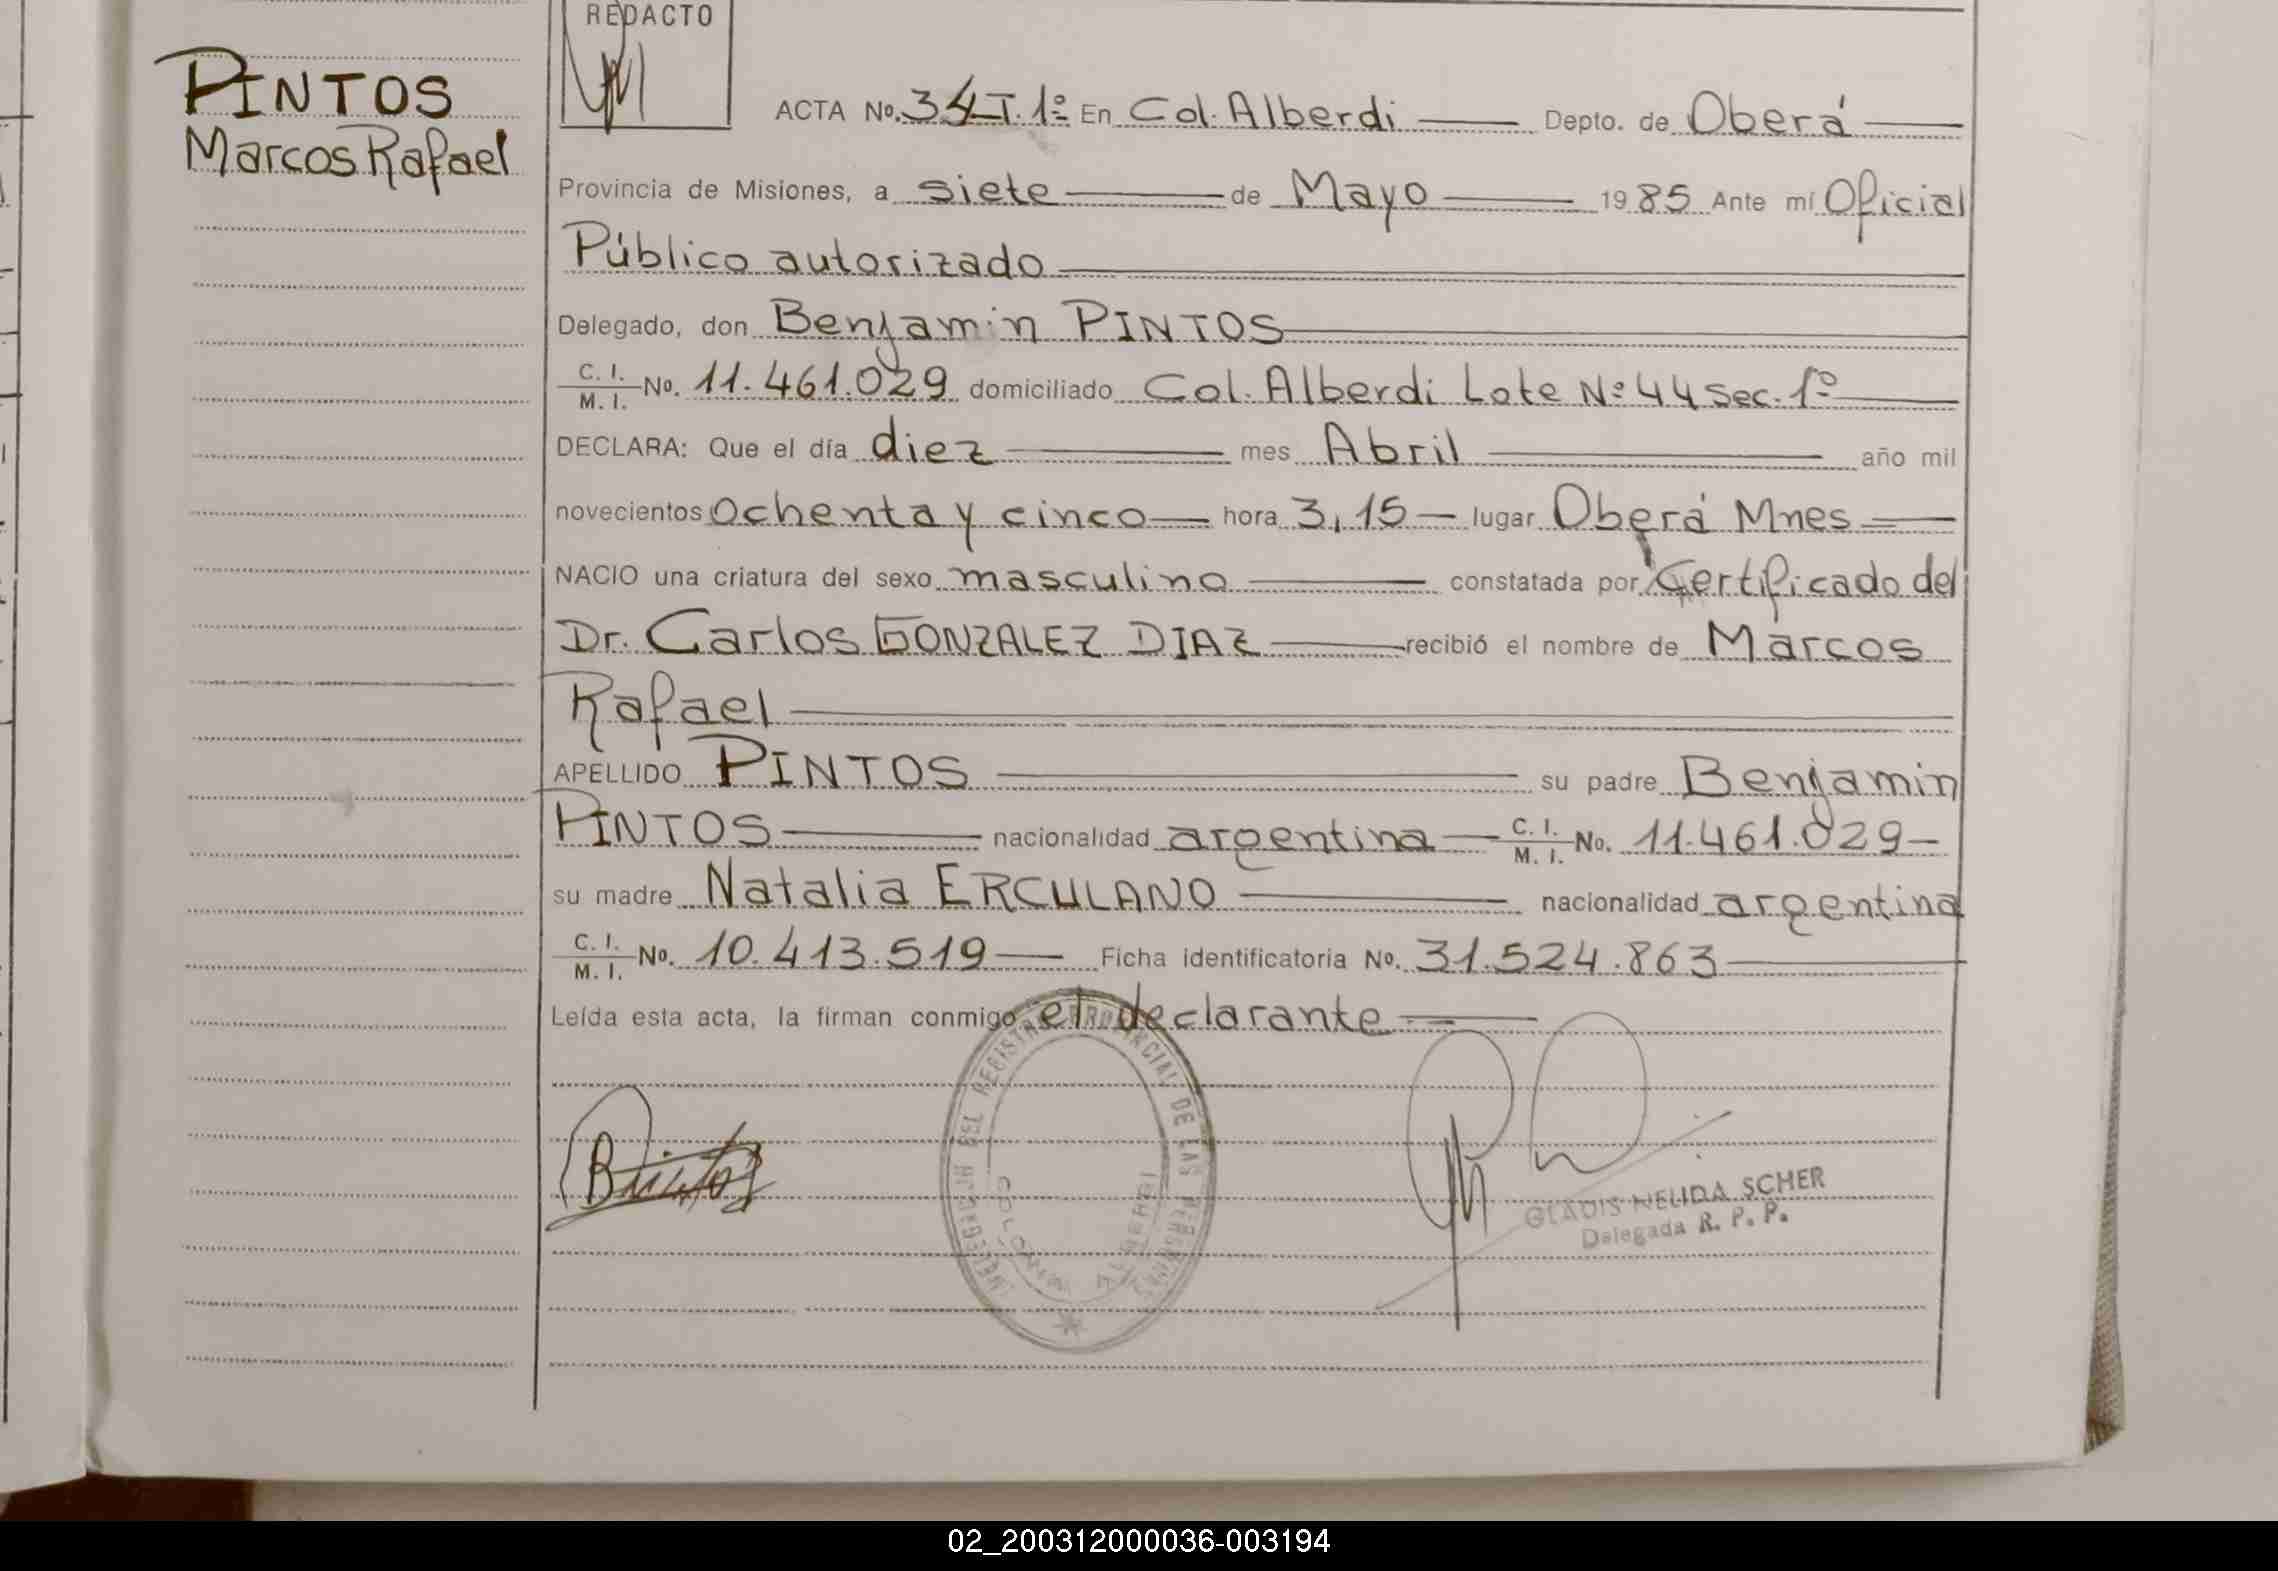 REDACTO
PINTOS
Marcos Rafael
ACTA No. 34 T. 1º En Col. Alberdi Depto. de Oberá
Provincia de Misiones, a siete de Mayo 1985 Ante mí Oficial
Público autorizado
Delegado, don Benjamin PINTOS
C. I. / M. I. No. 11.461.029 domiciliado Col. Alberdi Lote Nº 44 Sec. 1º
DECLARA: Que el día diez mes Abril año mil
novecientos Ochenta y cinco hora 3,15 lugar Oberá Mnes
NACIO una criatura del sexo masculino constatada por Certificado del
Dr. Carlos GONZALEZ DIAZ recibió el nombre de Marcos
Rafael
APELLIDO PINTOS su padre Benjamin
PINTOS nacionalidad argentina C. I. / M. I. No. 11.461.029
su madre Natalia ERCULANO nacionalidad argentina
C. I. / M. I. No. 10.413.519 Ficha identificatoria No. 31.524.863
Leída esta acta, la firman conmigo el declarante
DEL REGISTRO PROVINCIAL DE LAS PERSONAS
COLONIA ALBERDI
BPintos
GLADIS NELIDA SCHER
Delegada R. P. P.
02_200312000036-003194